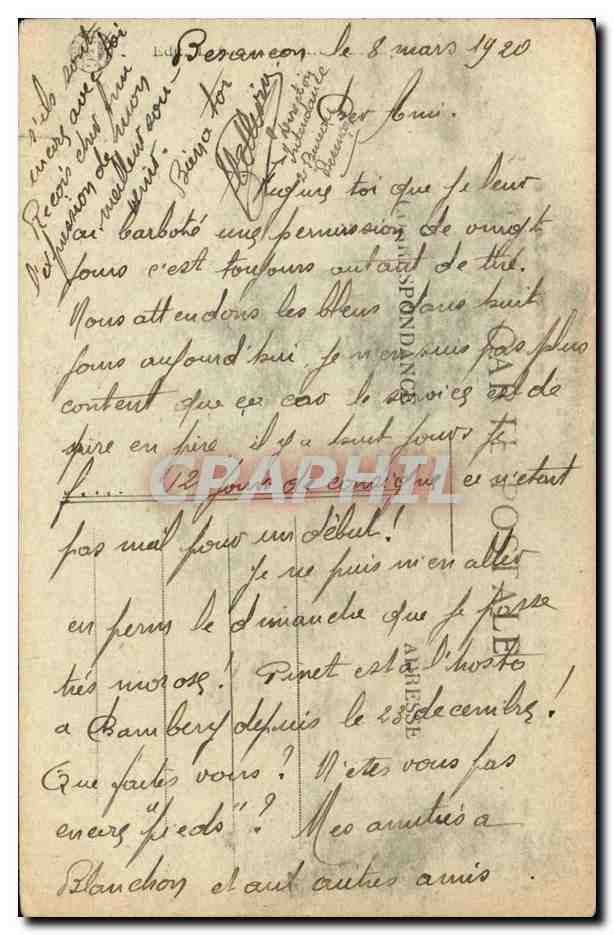 Besançon le 8 mars 1920
Cher Ami.
Figure toi que je leur
ai barboté une permission de vingt
jours c'est toujours autant de tiré.
Nous attendons les bleus dans huit
jours aujourd'hui, je n'en suis pas plus
content que ça car le service est de
pire en pire il y a huit jours je
f.... 12 jours de consigne ce n'étant
pas mal pour un début!
Je ne puis m'en aller
en perm le dimanche que je passe
très morose! Pinet est à l'hosto
a Chambery depuis le 23 decembre!
Que faites vous? N'etes vous pas
encore "pieds"? Mes amitiés a
Blanchon et aux autres amis.
s'ils sont
encore avec toi
Reçois cher ami
l'expression de mon
meilleur sou-
venir.
Bien a toi
Besançon
CARTE POSTALE
CORRESPONDANCE
ADRESSE
CPAPHIL